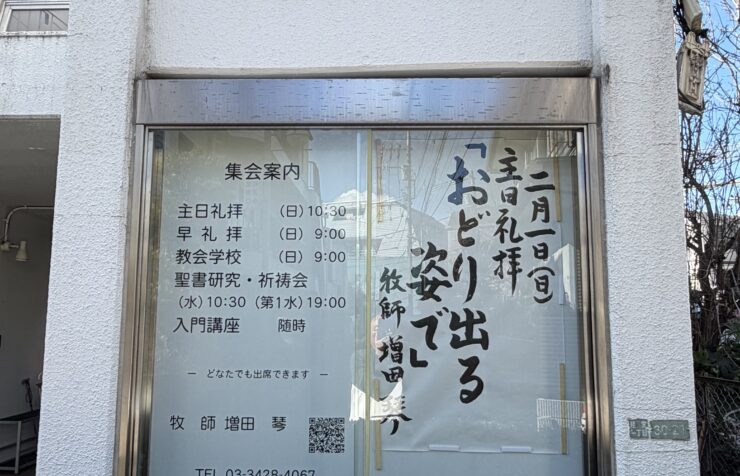 集会案内
主日礼拝 (日)10:30
早礼拝 (日) 9:00
教会学校 (日) 9:00
聖書研究・祈祷会
(水)10:30 (第1水)19:00
入門講座 随時
― どなたでも出席できます ―
牧師 増田 琴
TEL 03-3428-4067
二月一日(日)
主日礼拝
「おどり出る
姿で」
牧師 増田 琴